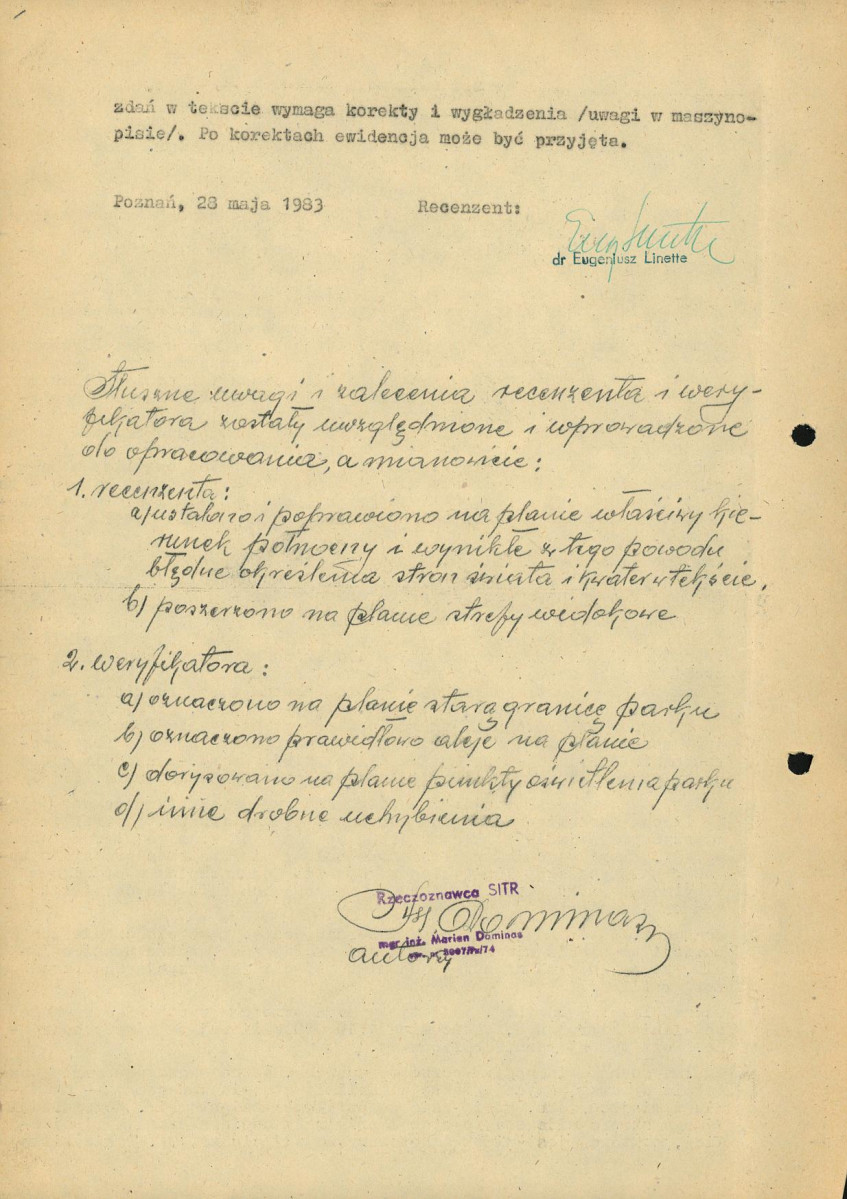 zdań w tekscie wymaga korekty i wygładzenia /uwagi w maszyno-
pisie/. Po korektach ewidencja może być przyjęta.
Poznań, 28 maja 1983 Recenzent:
dr Eugeniusz Linette
Słuszne uwagi i zalecenia recenzenta i wery-
fikatora zostały uwzględnione i wprowadzone
do opracowania, a mianowicie:
1. recenzenta:
a) ustalono i poprawiono na planie właściwy kie-
runek północny i wynikłe z tego powodu
błędne określenia stron świata i kwater w tekście.
b) poszerzono na planie strefy widokowe
2. weryfikatora:
a) oznaczono na planie starą granicę parku
b) oznaczono prawidłowo aleje na planie
c) dorysowano na planie punkty oświetlenia parku
d) inne drobne uchybienia
Rzeczoznawca SITR
Dominas
mgr inż. Marian Dominas
autorzy